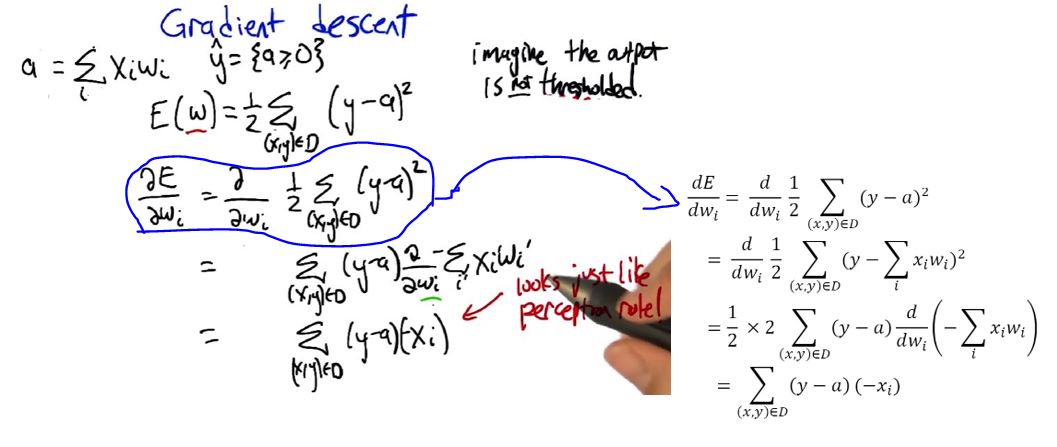 Gradient descent
a = Σ_i x_i w_i   ŷ = {a ≥ 0}
imagine the output
is not thresholded.
E(w) = 1/2 Σ_{(x,y)∈D} (y-a)²
∂E/∂w_i = ∂/∂w_i 1/2 Σ_{(x,y)∈D} (y-a)²
= Σ_{(x,y)∈D} (y-a) ∂/∂w_i -Σ_{i'} x_i w_i'
= Σ_{(x,y)∈D} (y-a)(-x_i)
looks just like
perceptron rule!
dE/dw_i = d/dw_i 1/2 Σ_{(x,y)∈D} (y − a)²
= d/dw_i 1/2 Σ_{(x,y)∈D} (y − Σ_i x_i w_i)²
= 1/2 × 2 Σ_{(x,y)∈D} (y − a) d/dw_i (−Σ_i x_i w_i)
= Σ_{(x,y)∈D} (y − a) (−x_i)